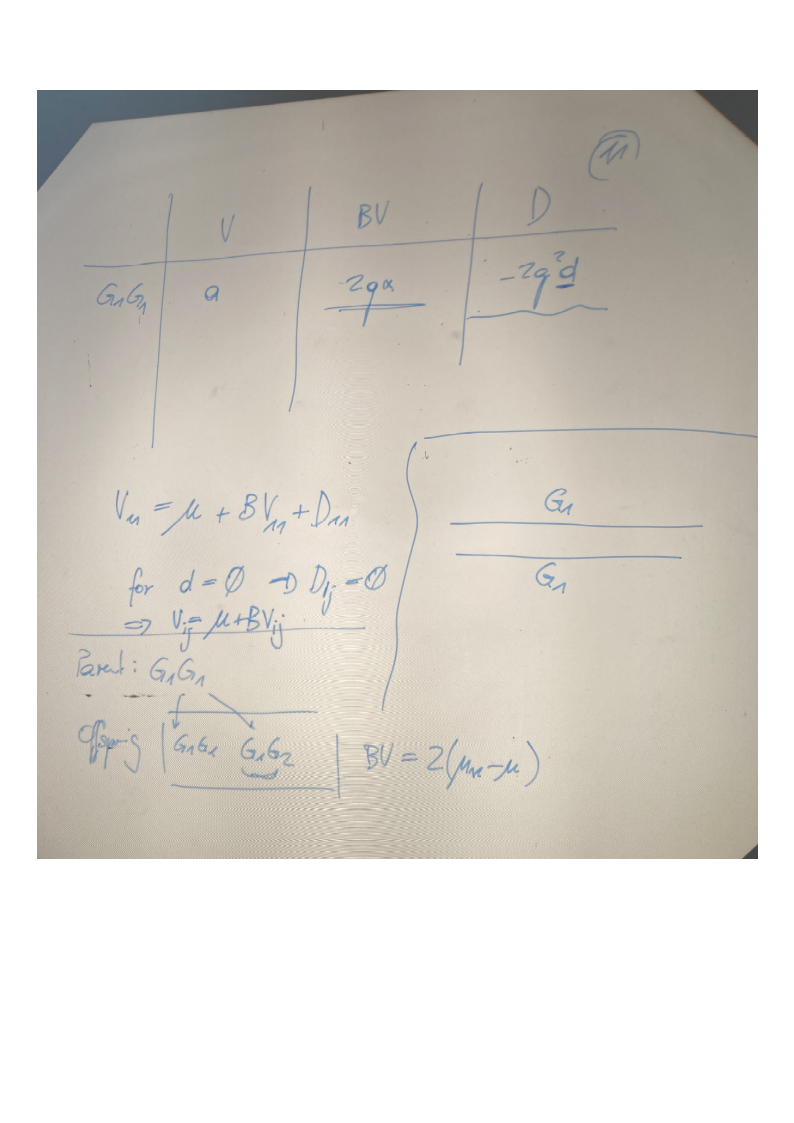 11
V BV D
G₁G₁ a 2qα -2q²d
V₁₁ = μ + BV₁₁ + D₁₁
for d = Ø → Dij = Ø
⇒ Vij = μ + BVij
G₁
G₁
Parent: G₁G₁
Offspring G₁G₁ G₁G₂
BV = 2(μ₁₁ - μ)